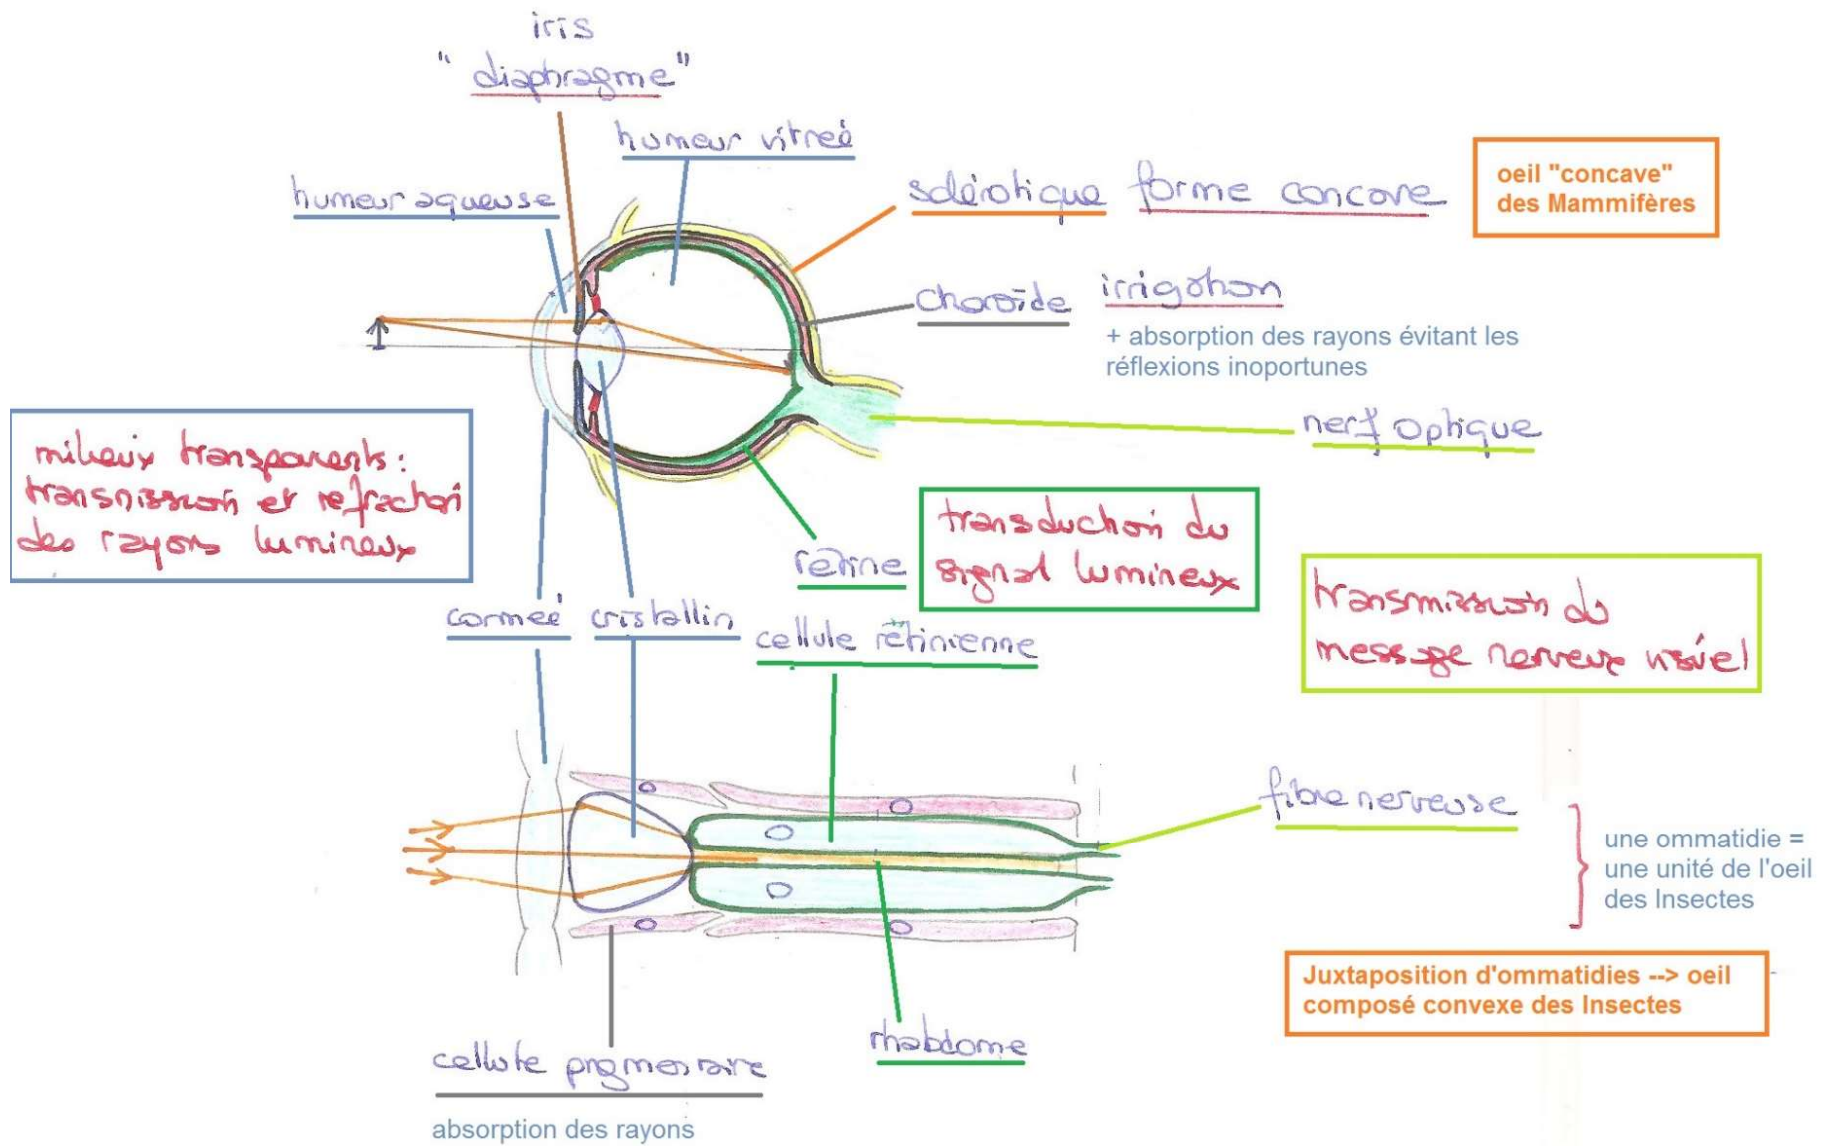 iris
"diaphragme"
humeur vitreé
humeur aqueuse
sclérotique forme concave
oeil "concave"
des Mammifères
choroïde irrigation
+ absorption des rayons évitant les
réflexions inoportunes
nerf optique
milieux transparents:
transmission et refraction
des rayons lumineux
retine
transduction du
signal lumineux
transmission du
message nerveux visuel
corneé cristallin
cellule rétinienne
fibre nerveuse
une ommatidie =
une unité de l'oeil
des Insectes
Juxtaposition d'ommatidies --> oeil
composé convexe des Insectes
rhabdome
cellule pigmentaire
absorption des rayons